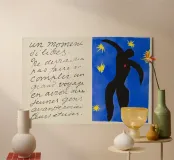 un moment
si libes.
ne devrait-on
pas faire ac-
complir un
grand voyage
en avion aux
jeunes gens
ayant terminé
leurs études.